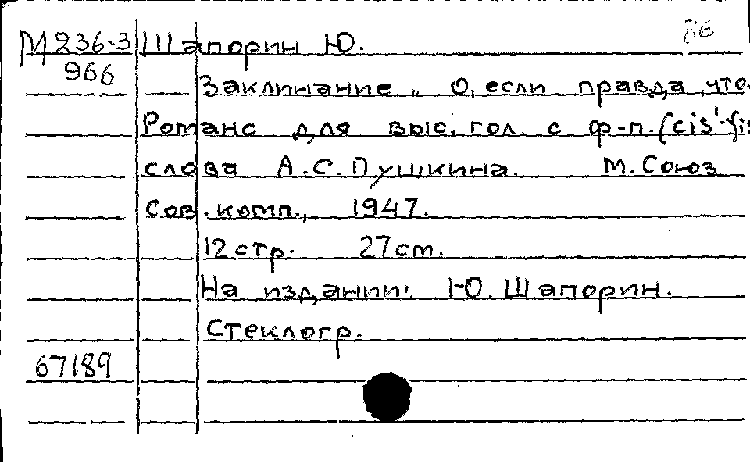 М236-3 Шапорин Ю.
966
Заклинание „ О, если правда, что
Романс для выс. гол. с ф-п. (cis'-fi
слова А.С. Пушкина. М. Союз
Сов. комп., 1947.
12 стр. 27 см.
На издании: Ю. Шапорин.
Стеклогр.
67189